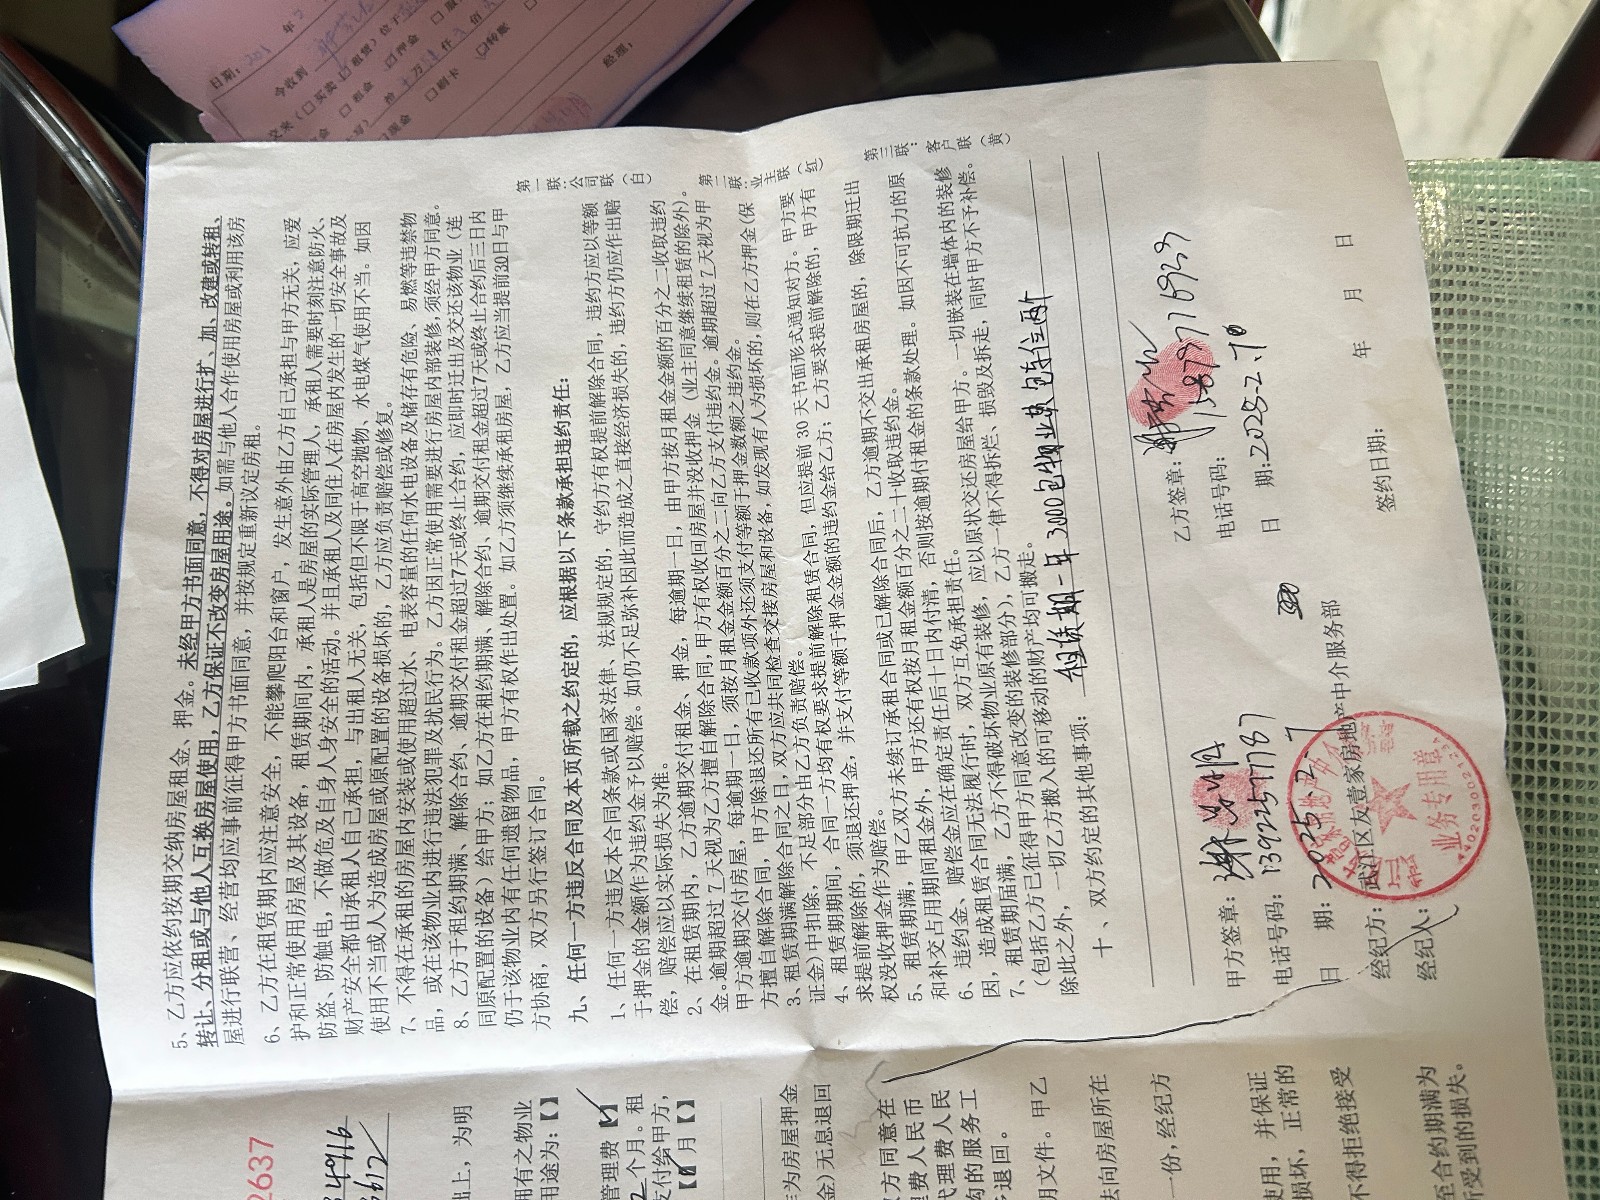 5、乙方应依约按期交纳房屋租金、押金。未经甲方书面同意，不得对房屋进行扩、加、改建或转租、
转让、分租或与他人互换房屋使用，乙方保证不改变房屋用途。如需与他人合作使用房屋或利用该房
屋进行联营、经营均应事前征得甲方书面同意，并按规定重新议定房租。
6、乙方在租赁期内应注意安全，不能攀爬阳台和窗户，发生意外由乙方自己承担与甲方无关，应爱
护和正常使用房屋及其设备，租赁期间内，承租人是房屋的实际管理人，承租人需要时刻注意防火、
防盗、防触电，不做危及自身人身安全的活动。并且承租人及同住人在房屋内发生的一切安全事故及
财产安全都由承租人自己承担，与出租人无关，包括但不限于高空抛物、水电煤气使用不当。如因
使用不当或人为造成房屋或原配置的设备损坏的，乙方应负责赔偿或修复。
7、不得在承租的房屋内安装或使用超过水、电表容量的任何水电设备及储存有危险、易燃等违禁物
品，或在该物业内进行违法犯罪及扰民行为。乙方因正常使用需要进行房屋内部装修，须经甲方同意。
8、乙方于租约期满、解除合约、逾期交付租金超过7天或终止合约，应即时迁出及交还该物业（连
同原配置的设备）给甲方；如乙方在租约期满、解除合约、逾期交付租金超过7天或终止合约后三日内
仍于该物业内有任何遗留物品，甲方有权作出处置。如乙方须继续承租房屋，乙方应当提前30日与甲
方协商，双方另行签订合同。
九、任何一方违反合同及本页所载之约定的，应根据以下条款承担违约责任：
1、任何一方违反本合同条款或国家法律、法规规定的，守约方有权提前解除合同，违约方应以等额
于押金的金额作为违约金予以赔偿。如仍不足弥补因此而造成之直接经济损失的，违约方仍应作出赔
偿，赔偿应以实际损失为准。
2、在租赁期内，乙方逾期交付租金、押金，每逾期一日，由甲方按月租金金额的百分之二收取违约
金。逾期超过 7 天视为乙方擅自解除合同，甲方有权收回房屋并没收押金（业主同意继续租赁的除外）。
甲方逾期交付房屋，每逾期一日，须按月租金金额百分之二向乙方支付违约金。逾期超过 7 天视为甲
方擅自解除合同，甲方除退还所有已收款项外还须支付等额于押金数额之违约金。
3、租赁期满解除合同之日，双方应共同检查交接房屋和设备，如发现有人为损坏的，则在乙方押金（保
证金）中扣除，不足部分由乙方负责赔偿。
4、租赁期期间，合同一方均有权要求提前解除租赁合同，但应提前 30 天书面形式通知对方。甲方要
求提前解除的，须退还押金，并支付等额于押金金额的违约金给乙方；乙方要求提前解除的，甲方有
权没收押金作为赔偿。
5、租赁期满，甲乙双方未续订承租合同或已解除合同后，乙方逾期不交出承租房屋的，除限期迁出
和补交占用期间租金外，甲方还有权按月租金额百分之二十收取违约金。
6、违约金、赔偿金应在确定责任后十日内付清，否则按逾期付租金的条款处理。如因不可抗力的原
因，造成租赁合同无法履行时，双方互免承担责任。
7、租赁期届满，乙方不得破坏物业原有装修，应以原状交还房屋给甲方。一切嵌装在墙体内的装修
（包括乙方已征得甲方同意改变的装修部分），乙方一律不得拆烂、损毁及拆走，同时甲方不予补偿。
除此之外，一切乙方搬入的可移动的财产均可搬走。
十、双方约定的其他事项：租赁期一年 3000包物业费包车位两个
甲方签章：
乙方签章：
电话号码：13922577787
电话号码：
日 期：2025.2.7
日 期：2025.2.7
经纪方：武江区友壹家房地产中介服务部
经纪人：
签约日期： 年 月 日
业务专用章
第一联：公司联（白）
第二联：业主联（红）
第三联：客户联（黄）
2637
出上，为明
拥有之物业
用途为：【】
管理费
2 个月。租
支付给甲方，
月【】
作为房屋押金
金）无息退回
方同意在
理费人民币
代理费人民
构的服务工
退回。
明文件。甲乙
法向房屋所在
一份，经纪方
使用，并保证
损坏，正常的
不得拒绝接受
至合约期满为
所受到的损失。
日期：
年
今收到
交来（□买卖 □租赁）位于
□租金 □押金
□刷卡 □转账
经理：